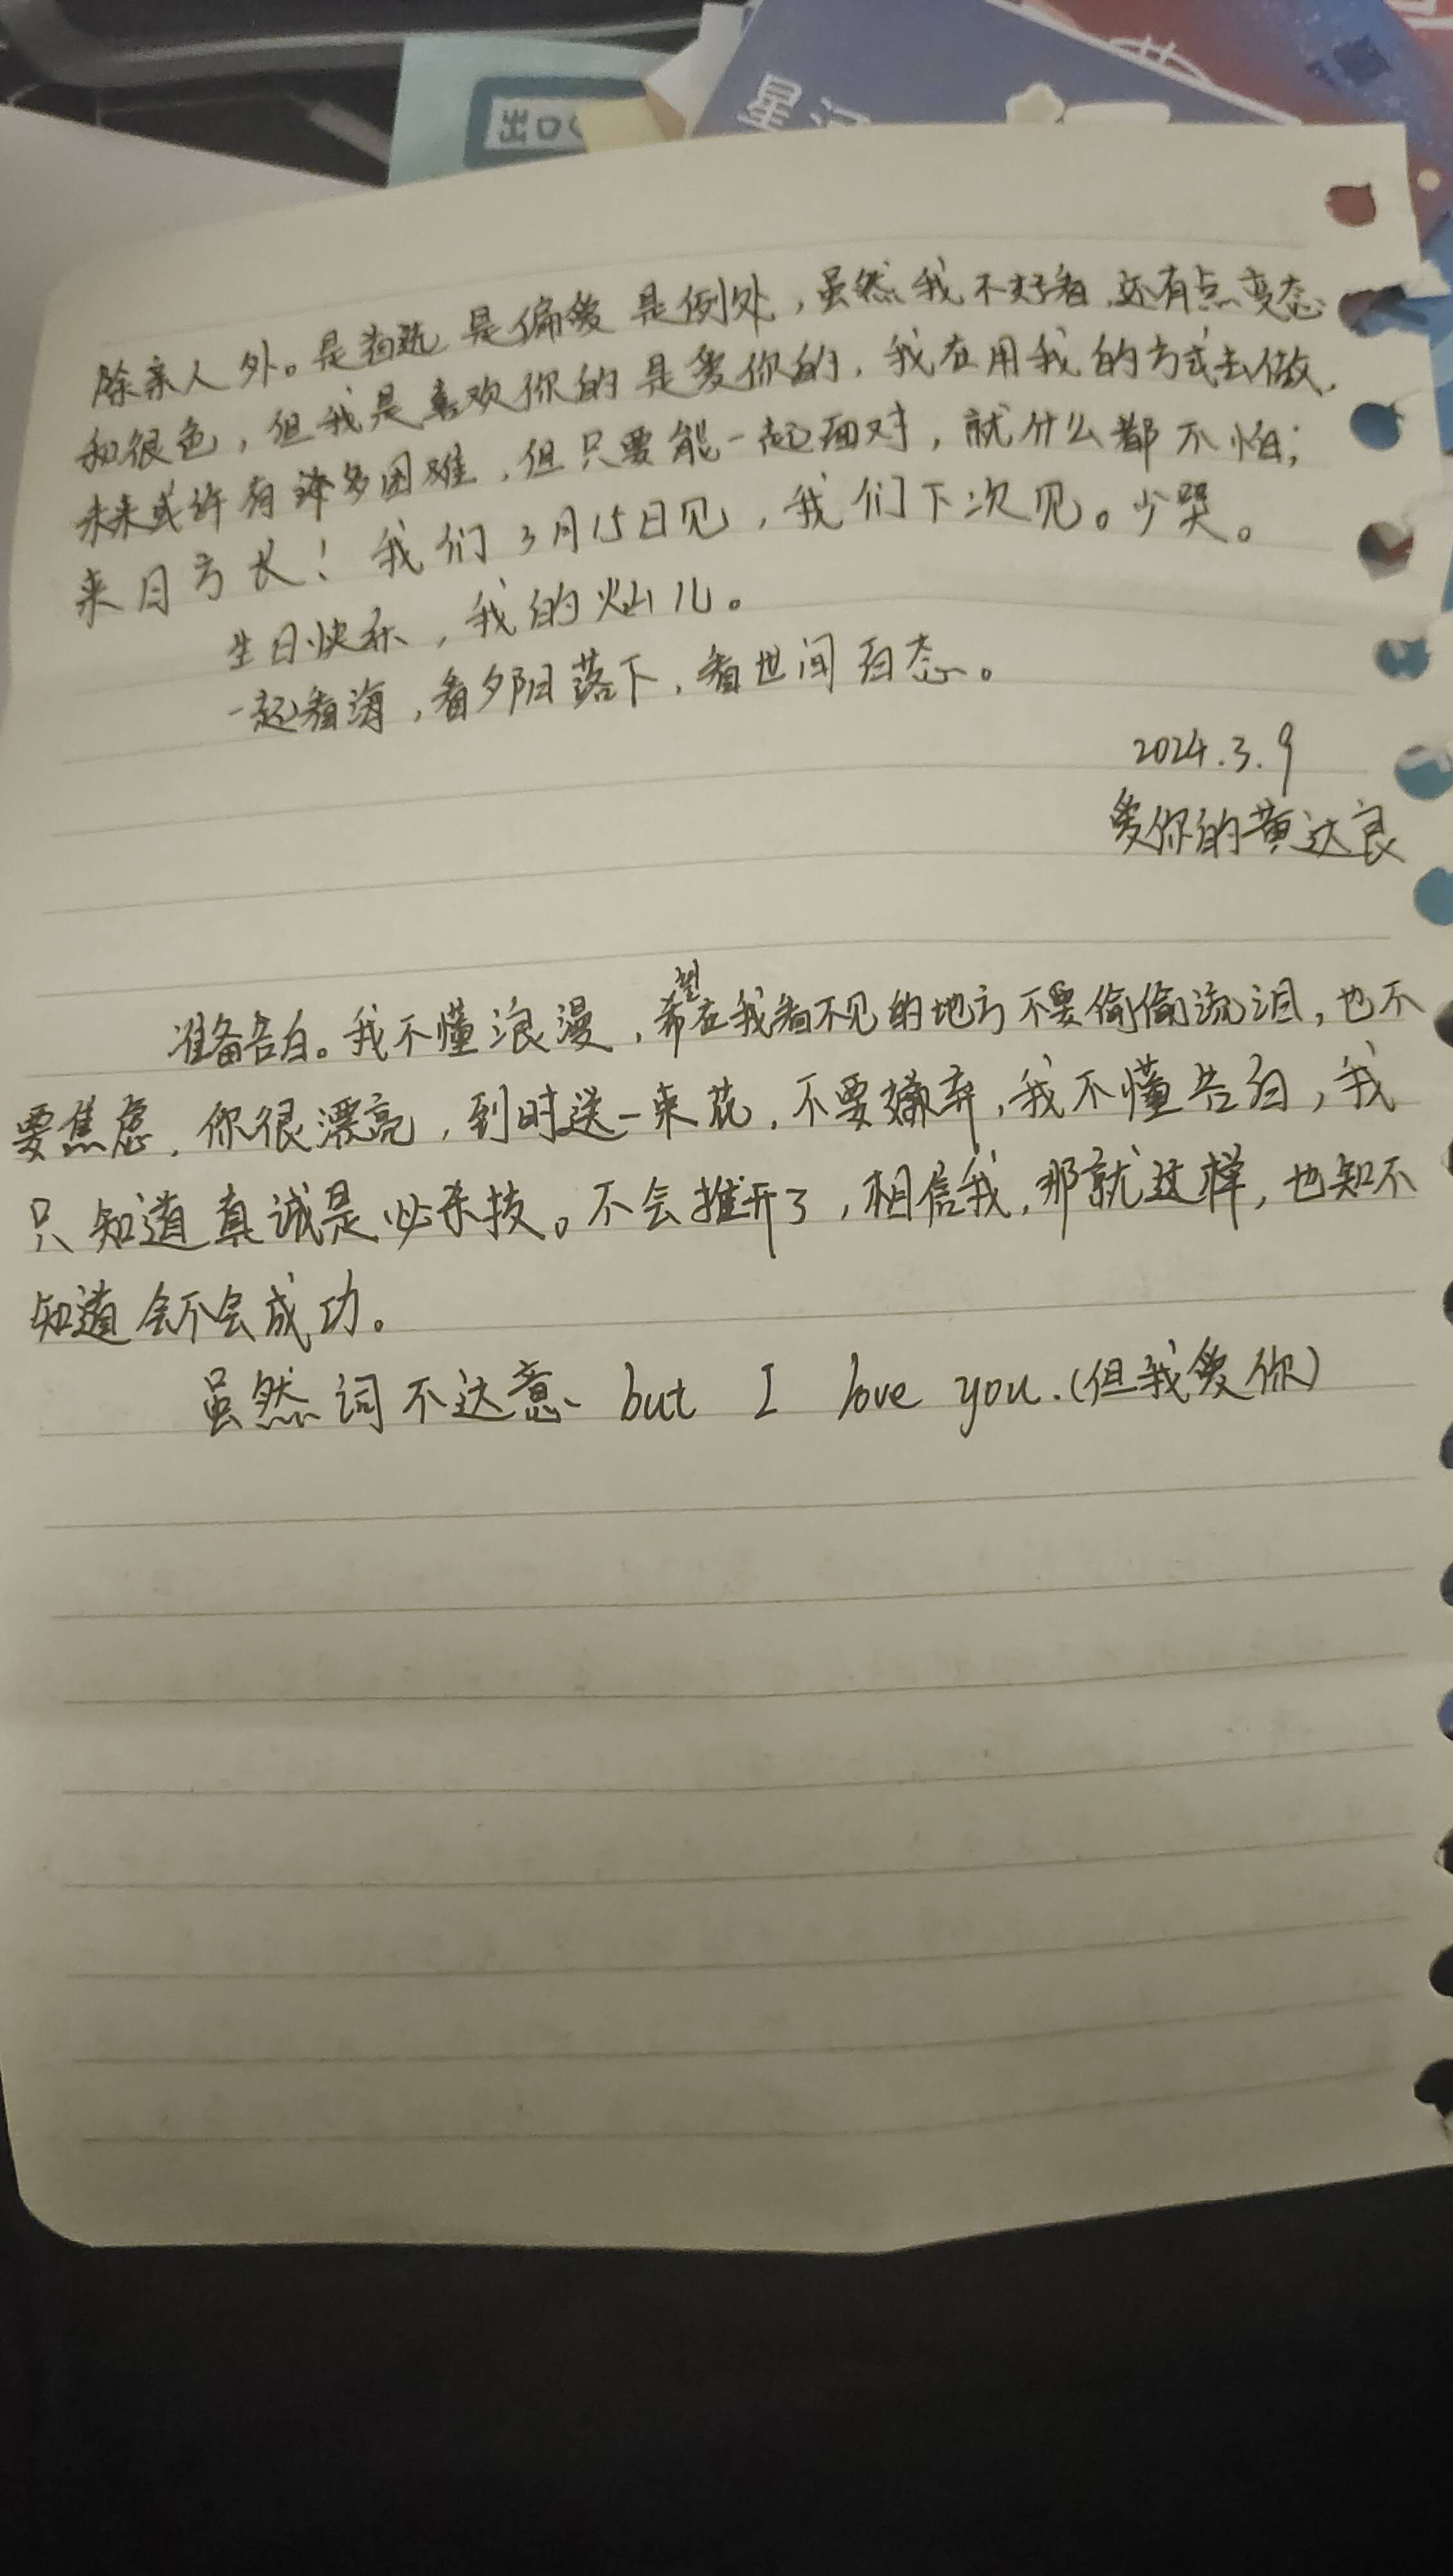 出口
星河
除亲人外。是首选 是偏爱 是例处，虽然我不好看，还有点变态
和很色，但我是喜欢你的是爱你的，我在用我的方式去做，
未来或许有许多困难，但只要能一起面对，就什么都不怕；
来日方长！我们3月15日见，我们下次见。少哭。
生日快乐，我的灿儿。
一起看海，看夕阳落下，看世间百态。
2024.3.9
爱你的黄达良
准备告白。我不懂浪漫，希望在我看不见的地方不要偷偷流泪，也不
要焦虑，你很漂亮，到时送一束花，不要嫌弃，我不懂告白，我
只知道真诚是必杀技。不会推开了，相信我，那就这样，也知不
知道会不会成功。
虽然词不达意、but I love you.(但我爱你)